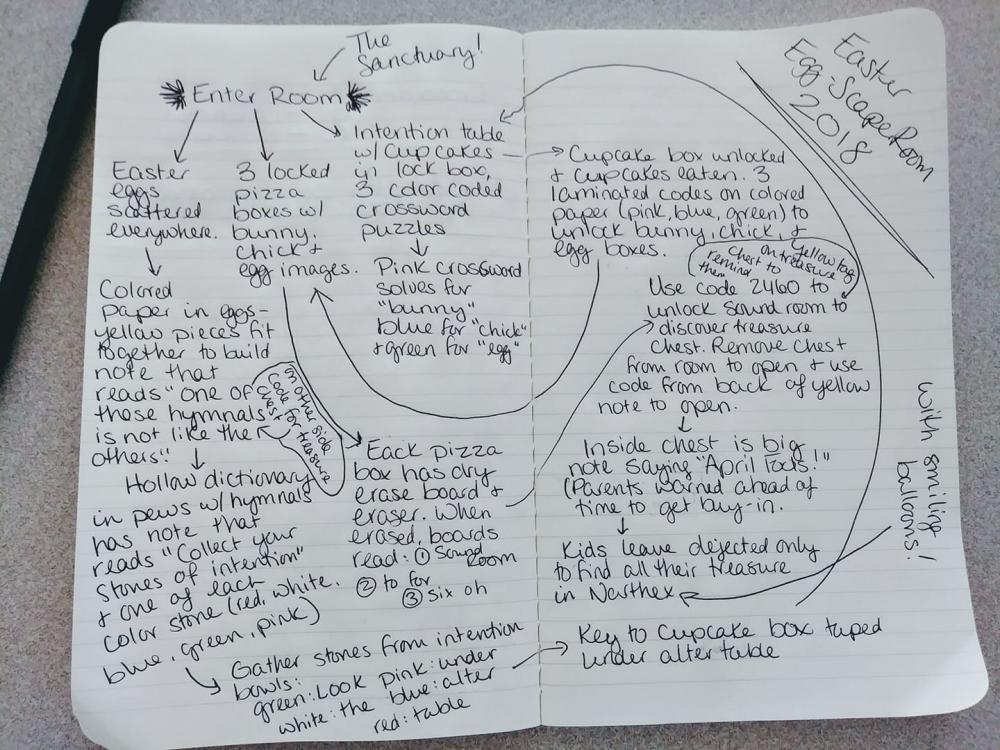 The
Sanctuary!
Enter Room
Easter
eggs
scattered
everywhere.
3 locked
pizza
boxes w/
bunny,
chick &
egg images.
Intention table
w/ cupcakes
in lock box,
3 color coded
crossword
puzzles
Pink crossword
solves for
"bunny"
blue for "chick"
& green for "egg"
Colored
paper in eggs-
yellow pieces fit
together to build
note that
reads "one of
these hymnals
is not like the
others!"
on other side
code for treasure
chest
Hollow dictionary
in pews w/ hymnals
has note that
reads "Collect your
stones of intention"
& one of each
color stone (red, white,
blue, green, pink)
Eack pizza
box has dry
erase board &
eraser. When
erased, boards
read: ① Sound
Room
② to for
③ six oh
Gather stones from intention
bowls:
green: Look pink: under
white: the blue: alter
red: table
Easter
Egg-Scape Room
2018
Cupcake box unlocked
& cupcakes eaten. 3
laminated codes on colored
paper (pink, blue, green) to
unlock bunny, chick, &
egg boxes.
Yellow tag
on treasure
chest to
remind
them
Use code 2460 to
unlock sound room to
discover treasure
chest. Remove chest
from room to open & use
code from back of yellow
note to open.
Inside chest is big
note saying "April Fools!"
(Parents warned ahead of
time to get buy-in.
Kids leave dejected only
to find all their treasure
in Narthex
with smiling
balloons!
Key to Cupcake box taped
under alter table